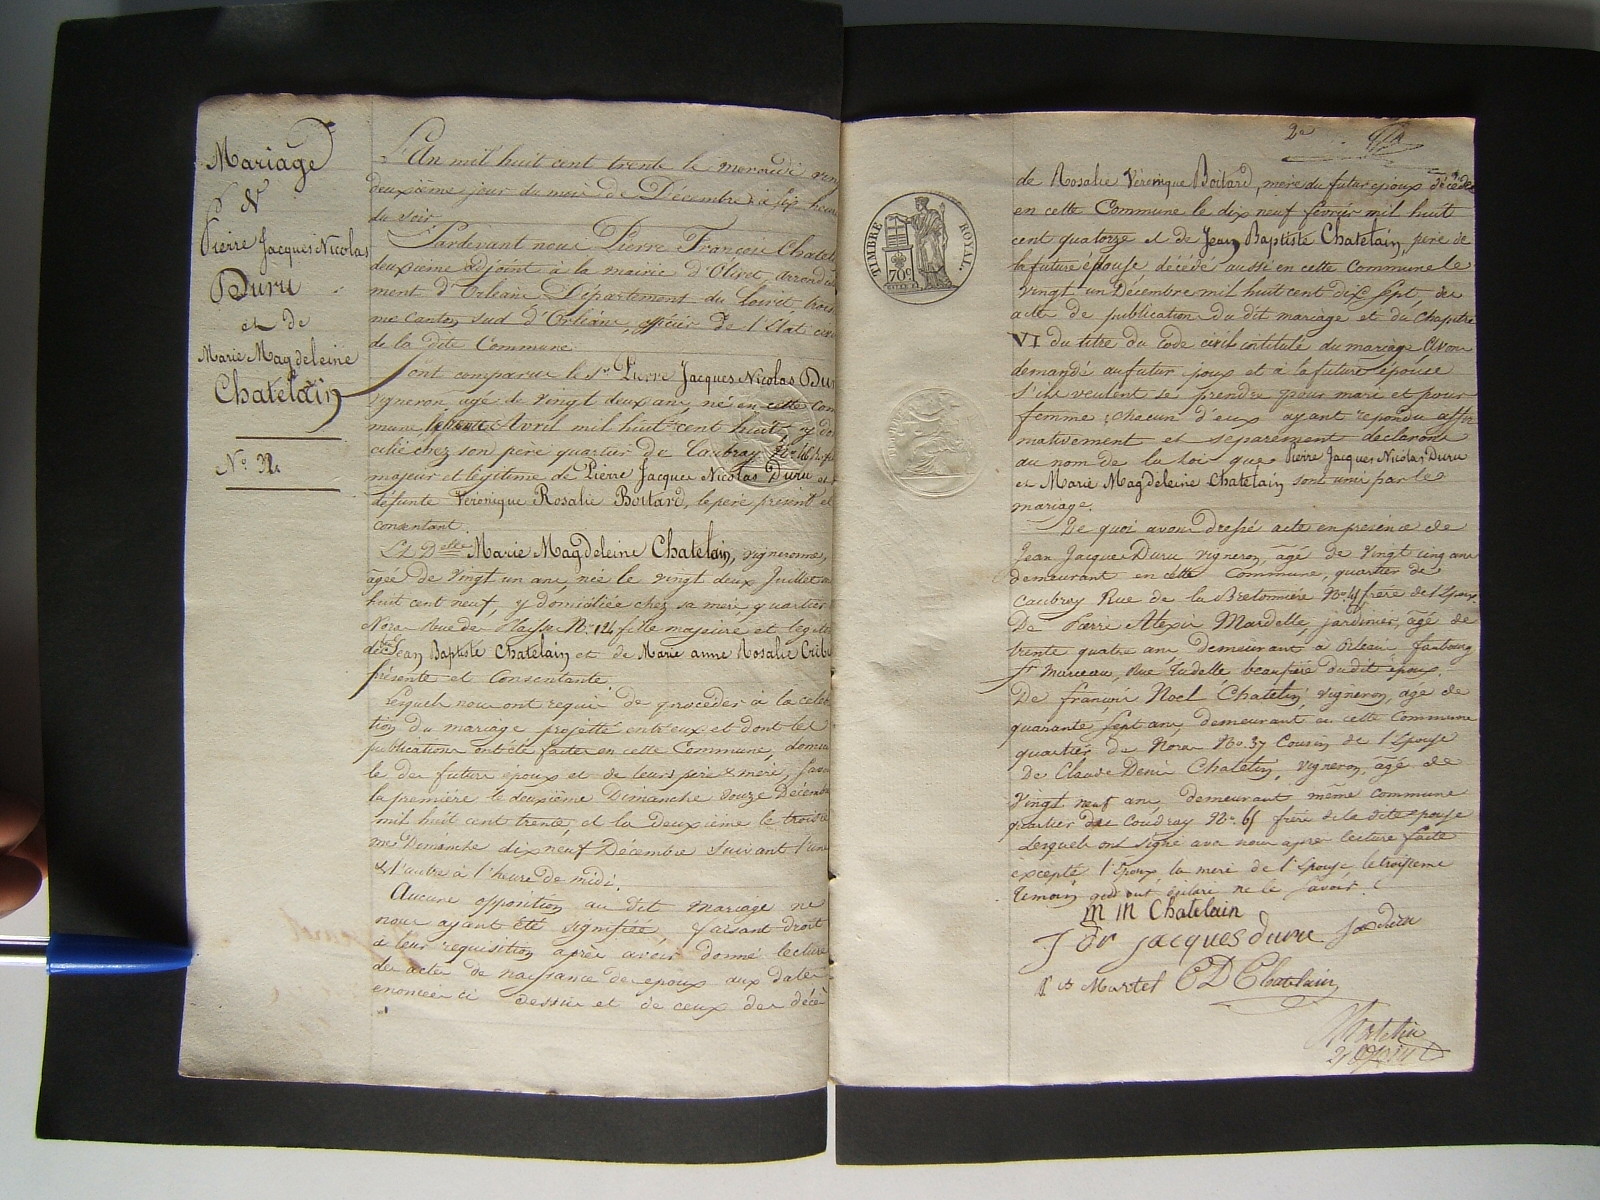 Mariage
N
Pierre Jacques Nicolas
Duru
et de
Marie Magdeleine
Chatelain
N.º 32
L'An mil huit cent trente le mercredi vin
deuxième jour du mois de Décembre à six heures
du soir
Pardevant nous Pierre François Chatel
deuxième adjoint à la mairie d'Olivet, arrondisse
ment d'Orléans Département du Loiret, trois
me Canton sud d'Orléans, officier de l'Etat civ
de la dite Commune
Sont comparus le Sr. Pierre Jacques Nicolas Dur
vigneron agé de vingt deux ans, né en cette Com
mune, Avril mil huit cent huit, y do
cilié chez son père quartier de Caubray
majeur et légitime de Pierre Jacques Nicolas Duru et
défunte Véronique Rosalie Boitard, le père présent et
consentant.
Et Delle Marie Magdeleine Chatelain, vigneronne,
âgée de vingt un ans, née le vingt deux Juillet
huit cent neuf, y domiciliée chez sa mère quartier
Nora Rue de No. 124 fille majeure et légit
Jean Baptiste Chatelain et de Marie anne Rosalie
présente et Consentante
Lesquels nous ont requis de procéder à la céléb
tion du mariage projetté entr'eux et dont les
publications ont été faites en cette Commune, domici
le des futurs époux et de leurs père & mère, savoir
la première le deuxième Dimanche douze Décemb
mil huit cent trente, et la Deuxième le trois
me Dimanche dix neuf Décembre suivant l'une
& l'autre à l'heure de midi.
Aucune opposition au dit mariage ne
nous ayant été signifiée faisant droit
à leur requisition après avoir donné lecture
des actes de naissance des époux aux dates
enoncées ci dessus et de ceux des décès
2e
TIMBRE ROYAL.
70c
de Rosalie Véronique Boitard, mère du futur époux décédée
en cette Commune le dix neuf février mil huit
cent quatorze et de Jean Baptiste Chatelain, père de
la future épouse décédé aussi en cette Commune le
vingt un Décembre mil huit cent dix sept, des
actes de publication du dit mariage et du Chapitre
VI du titre du Code civil intitulé du mariage Avons
demandé au futur époux et à la future épouse
s'ils veulent se prendre pour mari et pour
femme, chacun d'eux ayant répondu affir
mativement et séparément déclarons
au nom de la loi que Pierre Jacques Nicolas Duru
et Marie Magdeleine Chatelain sont unis par le
mariage.
De quoi avons dressé acte en présence de
Jean Jacques Duru vigneron, âgé de vingt cinq ans
demeurant en cette Commune, quartier de
Caubray Rue de la Bretonnière frère de l'époux
De Pierre Alexis Mardelle, jardinier, âgé de
trente quatre ans demeurant à Orléans faubourg
St. Marceau, Rue Tudelle beaufrère dudit époux.
De françois Noel Chatelin, vigneron, âgé de
quarante sept ans, demeurant en cette Commune
quartier de Nora No. 37 Cousin de l'épouse
de Claude Denis Chatelin, vigneron, âgé de
Vingt neuf ans, demeurant même commune
quartier de Coudray frère de la dite épouse
Lesquels ont signé avec nous après lecture faite
excepté l'époux la mère de l'épouse, le troisième
témoin qui ont déclaré ne le savoir.
M M Chatelain
jacques duru
Martel C D Chatelain